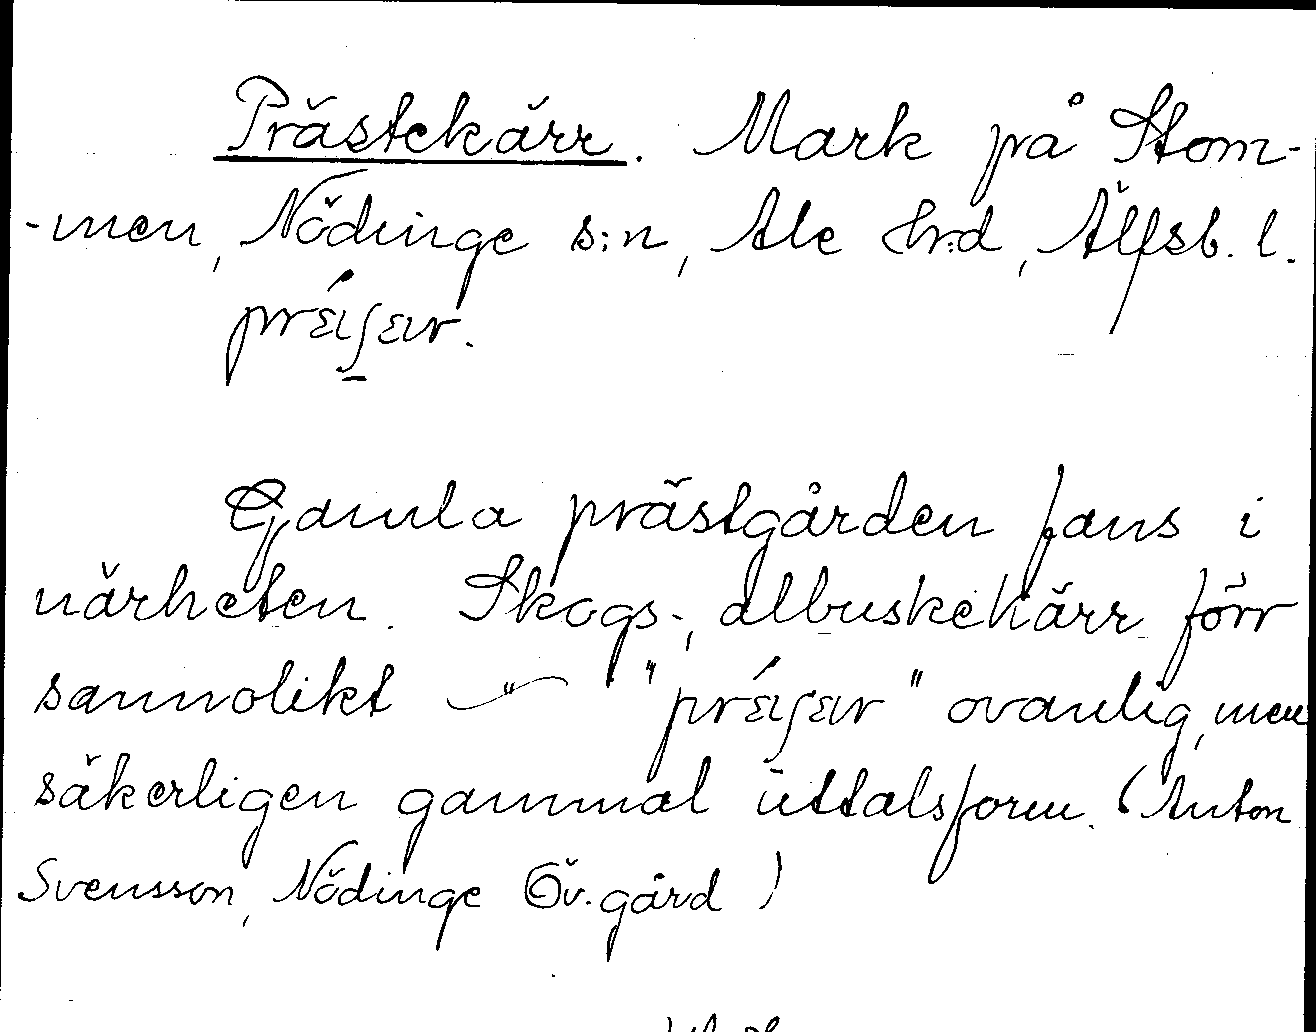 Prästekärr. Mark på Stom-
-men, Nödinge s:n, Ale hrd, Älfsb. l.
Gamla prästgården fans i
närheten. Skogs-, albuskekärr förr
sannolikt " ovanlig, men
säkerligen gammal uttalsform. (Anton
Svensson, Nödinge Öv.gård)